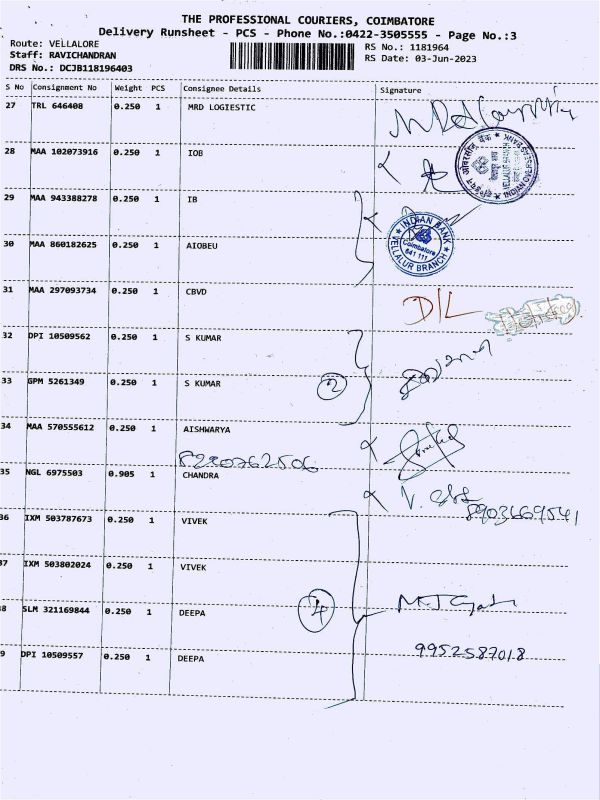 THE PROFESSIONAL COURIERS, COIMBATORE
Delivery Runsheet - PCS - Phone No.:0422-3505555 - Page No.:3
Route: VELLALORE
RS No.: 1181964
Staff: RAVICHANDRAN
RS Date: 03-Jun-2023
DRS No.: DCJB118196403
S No Consignment No Weight PCS Consignee Details Signature
27 TRL 646408 0.250 1 MRD LOGIESTIC
28 MAA 102073916 0.250 1 IOB
29 MAA 943388278 0.250 1 IB
INDIAN BANK
Coimbatore
641 111
VELLALUR BRANCH
30 MAA 860182625 0.250 1 AIOBEU
31 MAA 297093734 0.250 1 CBVD D/L
32 DPI 10509562 0.250 1 S KUMAR
33 GPM 5261349 0.250 1 S KUMAR 2
34 MAA 570555612 0.250 1 AISHWARYA
35 NGL 6975503 0.905 1 CHANDRA
8903669541
36 IXM 503787673 0.250 1 VIVEK
37 IXM 503802024 0.250 1 VIVEK
38 SLM 321169844 0.250 1 DEEPA 4
39 DPI 10509557 0.250 1 DEEPA 9952587018